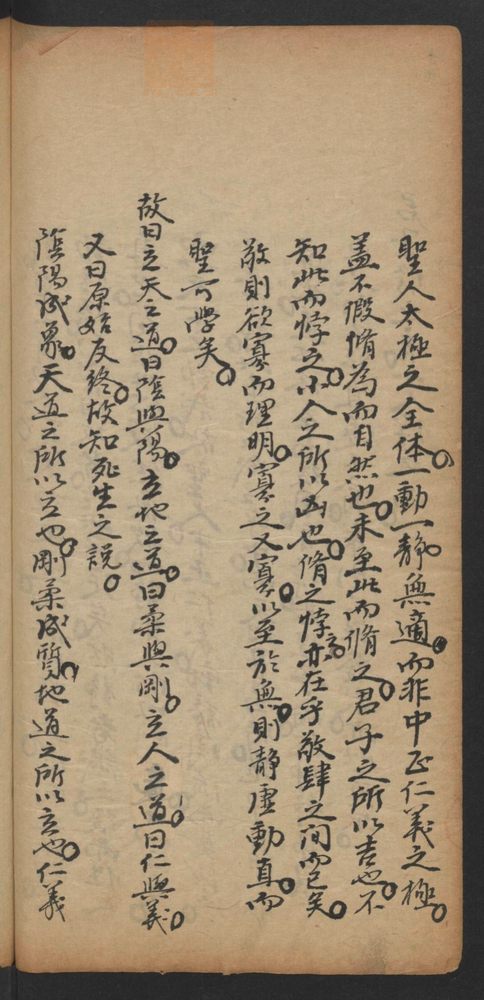 聖人太極之全体。一動一靜。無適而非中正仁義之極。
盖不假脩為而自然也。未至此而脩之。君子之所以吉也。不
知此而悖之。小人之所以凶也。脩之悖之。亦在乎敬肆之间而已矣。
敬則欲寡而理明。寡之又寡。以至於無。則靜虛動直。而
聖可學矣。
故曰立天之道。曰隂與陽。立地之道。曰柔與剛。立人之道。曰仁與義。
又曰原始反終。故知死生之說。
隂陽成象。天道之所以立也。剛柔成質。地道之所以立也。仁義